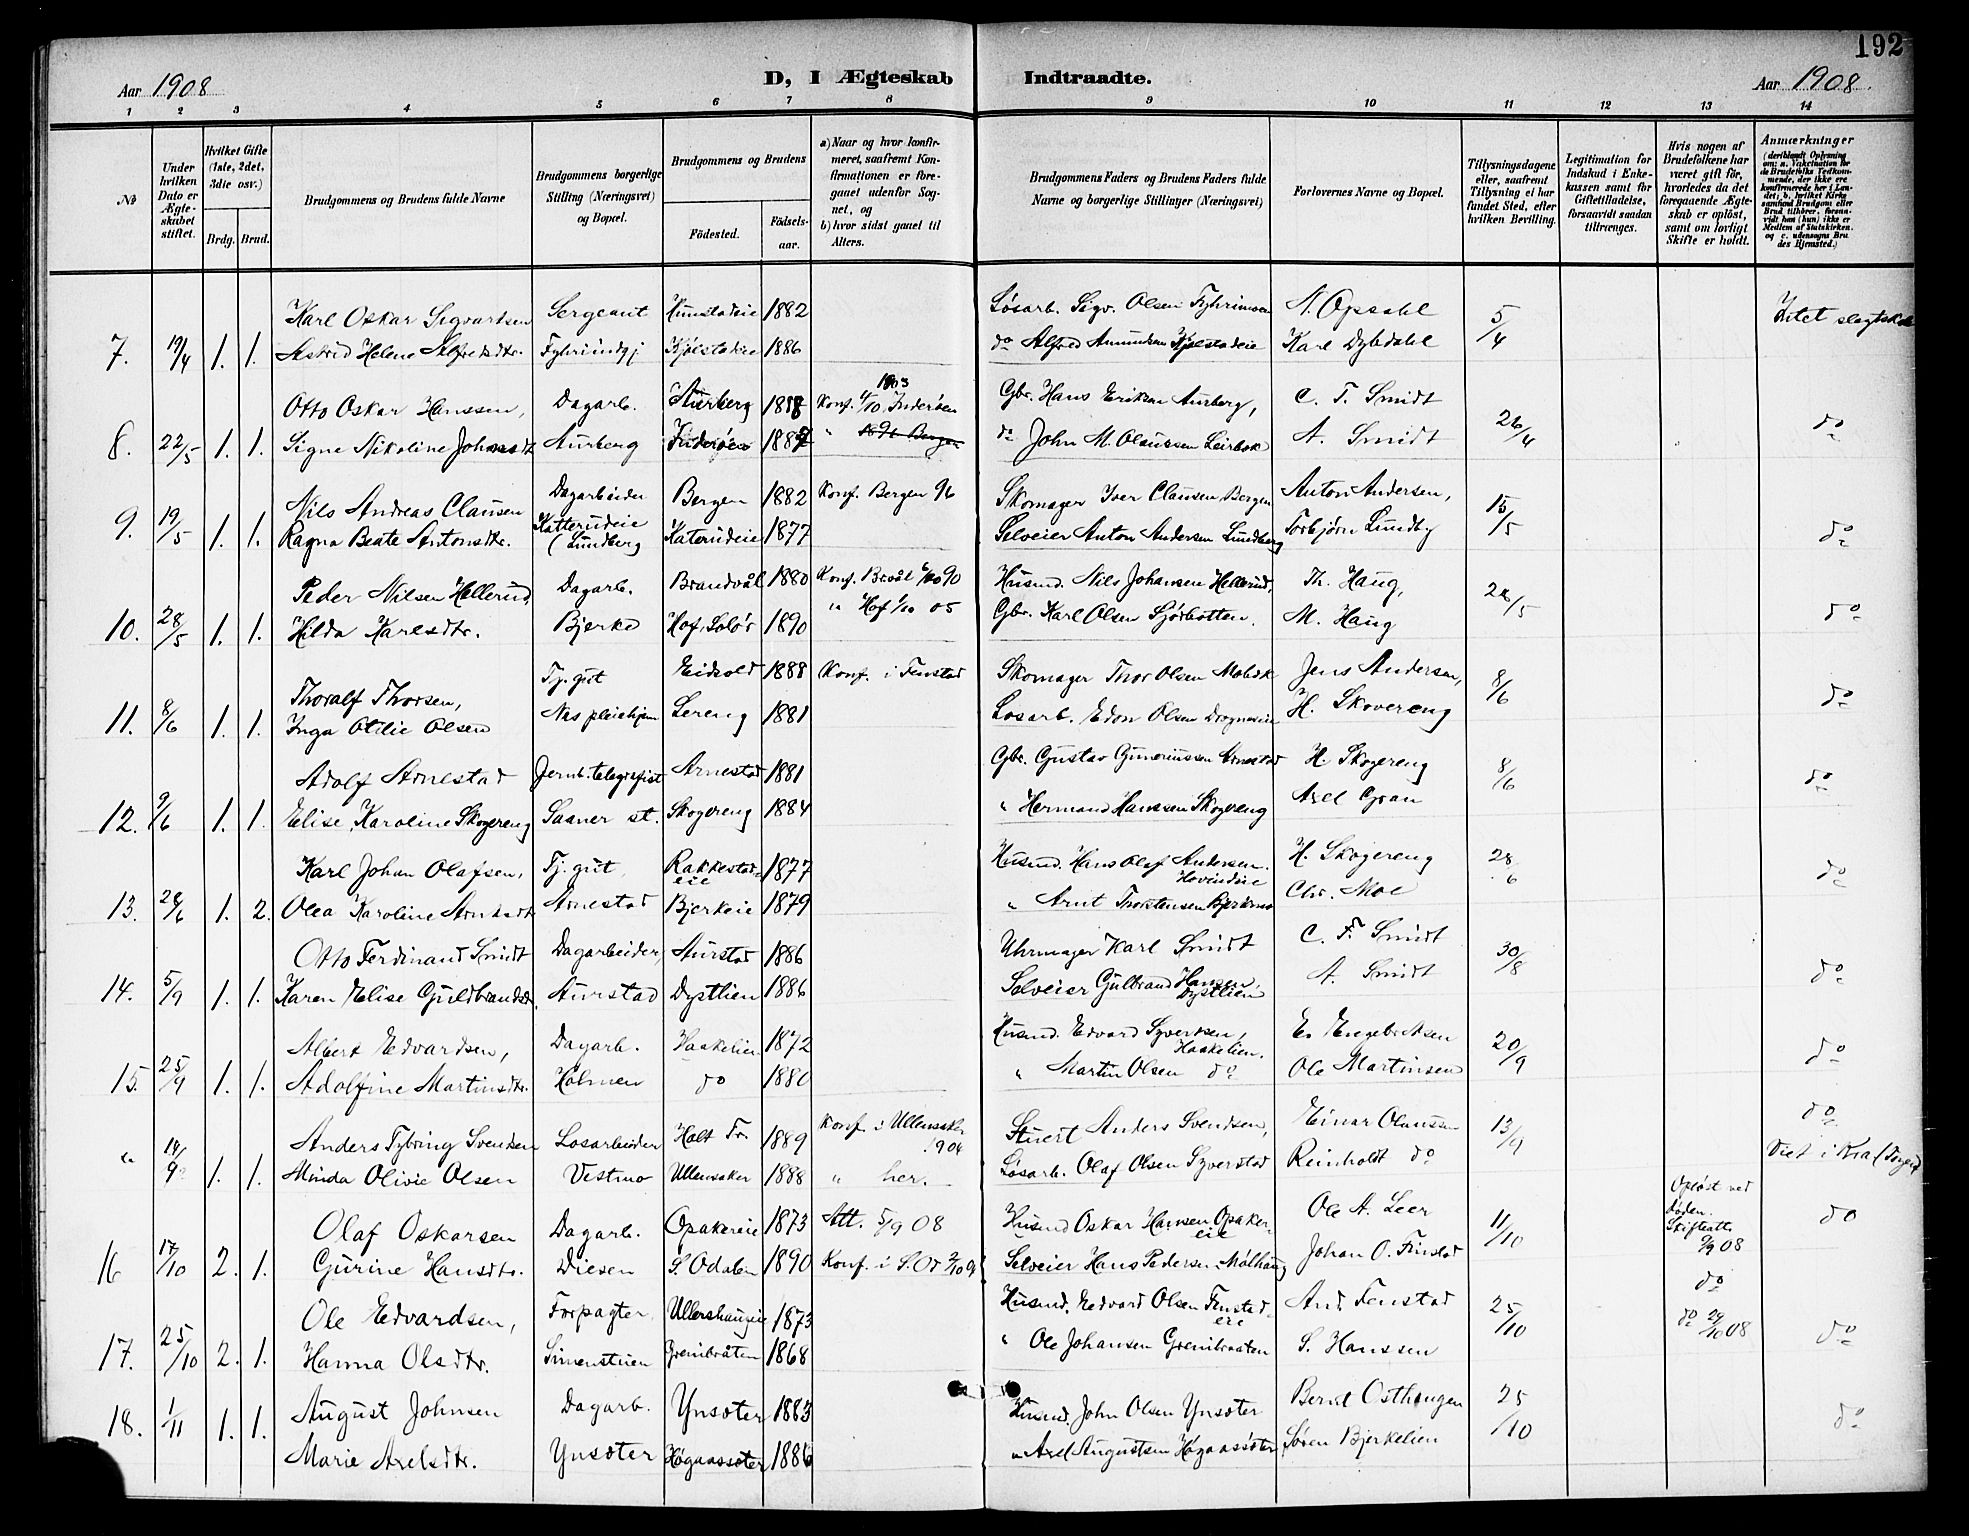 192
Aar 1908
D, I Ægteskab Indtraadte.
Aar 1908.
1 2 3 4 5 6 7 8 9 10 11 12 13 14
No
Under hvilken Dato er Ægteskabet stiftet.
Hvilket Gifte (1ste, 2det, 3die osv.)
Brdg. Brud.
Brudgommens og Brudens fulde Navne
Brudgommens borgerlige Stilling (Næringsvei) og Bopæl.
Brudgommens og Brudens
Fødested.
Fødselsaar.
a) Naar og hvor konfirmeret, saafremt Konfirmationen er foregaaet udenfor Sognet, og
b) hvor sidst gaaet til Alters.
Brudgommens Faders og Brudens Faders fulde Navne og borgerlige Stillinger (Næringsvei)
Forlovernes Navne og Bopæl.
Tillysningsdagene eller, saafremt Tillysning ei har fundet Sted, efter hvilken Bevilling.
Legitimation for Indskud i Enkekassen samt for Giftetilladelse, forsaavidt saadan tiltrænges.
Hvis nogen af Brudefolkene har været gift før, hvorledes da det foregaaende Ægteskab er opløst, samt om lovligt Skifte er holdt.
Anmærkninger
(deriblandt Oplysning om: a. Vakcination for de Brudefolks Vedkommende, der ikke ere konfirmerede her i Landet; b. hvilket Kirkesamfund Brudgom eller Brud tilhører, forsaavidt han (hun) ikke er Medlem af Statskirken, og c. udensogns Brudes Hjemsted.)
Karl Oskar Sigvartsen Sergeant 1882 Løsarb. Sigv. Olsen N. Opsahl 5/4 Intet slegtsk
7. 19/4 1. 1. Astrid Helene Alfredsdtr. 1886 do Alfred Amundsen Kjølstadeie Karl Dybdahl
Otto Oskar Hanssen, Dagarb. Aurberg 1888 Konf. 4/10 1903 Inderøen Gbr. Hans Eriksen Aurberg, C. F. Smidt 26/4 do
8. 22/5 1. 1. Signe Nikoline Johnsdt Aurberg Inderøen " 1896 Bergen do John M. Olaussen A. Smidt
Nils Andreas Clausen Dagarbeider Bergen 1882 Konf. Bergen 96 Skomager Iver Clausen Bergen Anton Andersen, 15/5 do
9. 19/5 1. 1. Ragna Beate Antonsdtr. Katterudeie (Lundberg Katerudeie 1877 Selveier Anton Andersen Lundberg Torbjørn Lundby
Peder Nilsen Hellerud Dagarb. Brandvål 1880 Husmd. Nils Johansen Hellerud, Th. Haug, 24/5 do
10. 28/5 1. 1. Hilda Karlsdtr. Bjerke Hof, Solør 1890 " Hof 1/10 05 Gbr. Karl Olsen Sjørbotten. M. Haug
Thoralf Thorsen, Tj.gut Eidsvold 1888 Konf. i Fenstad Skomager Thor Olsen Jens Andersen, 8/6 do
11. 8/6 1. 1. Inga Otilie Olsen Nes pleiehjem Lereng 1881 Løsarb. Edon Olsen H. Skovereng
Adolf Arnestad Jernb. telegrafist Arnestad 1881 Gbr. Gustav Guneriussen Arnestad H. Skogereng 8/6 do
12. 9/6 1. 1. Elise Karoline Skogereng Saaner st. Skogereng 1884 " Hermand Hanssen Skogereng Axel Gran
Karl Johan Olafsen, Tj.gut, Rakkestadeie 1877 Husmd. Hans Olaf Andersen. Hovindeie H. Skogereng 28/6 do
13. 28/6 1. 2. Olea Karoline Arntsdt Arnestad Bjerkeie 1879 " Arnt Thorstensen Chr. Moe
Otto Ferdinand Smidt Dagarbeider, Aurstad 1886 Uhrmager Karl Smidt C. F. Smidt 30/8 do
14. 5/9 1. 1. Karen Elise Guldbrandsd. Aurstad Dystlien 1886 Selveier Gulbrand Hansen, Dystlien A. Smidt
Albert Edvardsen, Dagarb. Haakelien 1872 Husmd. Edvard Syversen, Haakelien. E. Engebretsen 20/9 do
15. 25/9 1. 1. Adolfine Martinsdtr. Holmen do 1880 " Martin Olsen do Ole Martinsen
Anders Tybring Svendsen Løsarbeider Holt 1889 Konf. i Ullensaker 1904 Anders Svendsen, Einar Olaussen 13/9 do
" 14/9 1. 1. Minda Olivie Olsen Vestmo Ullensaker 1888 " her. Løsarb. Olaf Olsen Syverstad Reinholdt do Viet i Kra
Olaf Oskarsen Dagarb. Opakereie 1873 Alt. 5/9 08 Husmd Oskar Hansen Opakereie Ole A. Leer 11/10 Opløst ved døden. Skifteatt. 9/9 08 do
16 17/10 2. 1. Gurine Hansdtr. Diesen S. Odalen 1890 Konf. i S. Od 2/10 Selveier Hans Pedersen Mølhaug Johan O. Finstad do
Ole Edvardsen, Forpagter, Ullershaugeie 1873 Husmd. Edvard Olsen Fenstadeie And. Fenstad 25/10 do 29/10 08 do
17. 25/10 2. 1. Hanna Olsdtr. Simenstuen Grenibråten 1868 " Ole Johansen Grenibraaten S. Hanssen
August Johnsen Dagarb. Ynsoter 1883 Husmd. John Olsen Ynsoter Bernt Osthaugen 25/10 do
18. 1/11 1. 1. Marie Axelsdtr. Ynsoter Høgaassoter 1886 " Axel Augustsen Høgaassoter Søren Bjerkelien